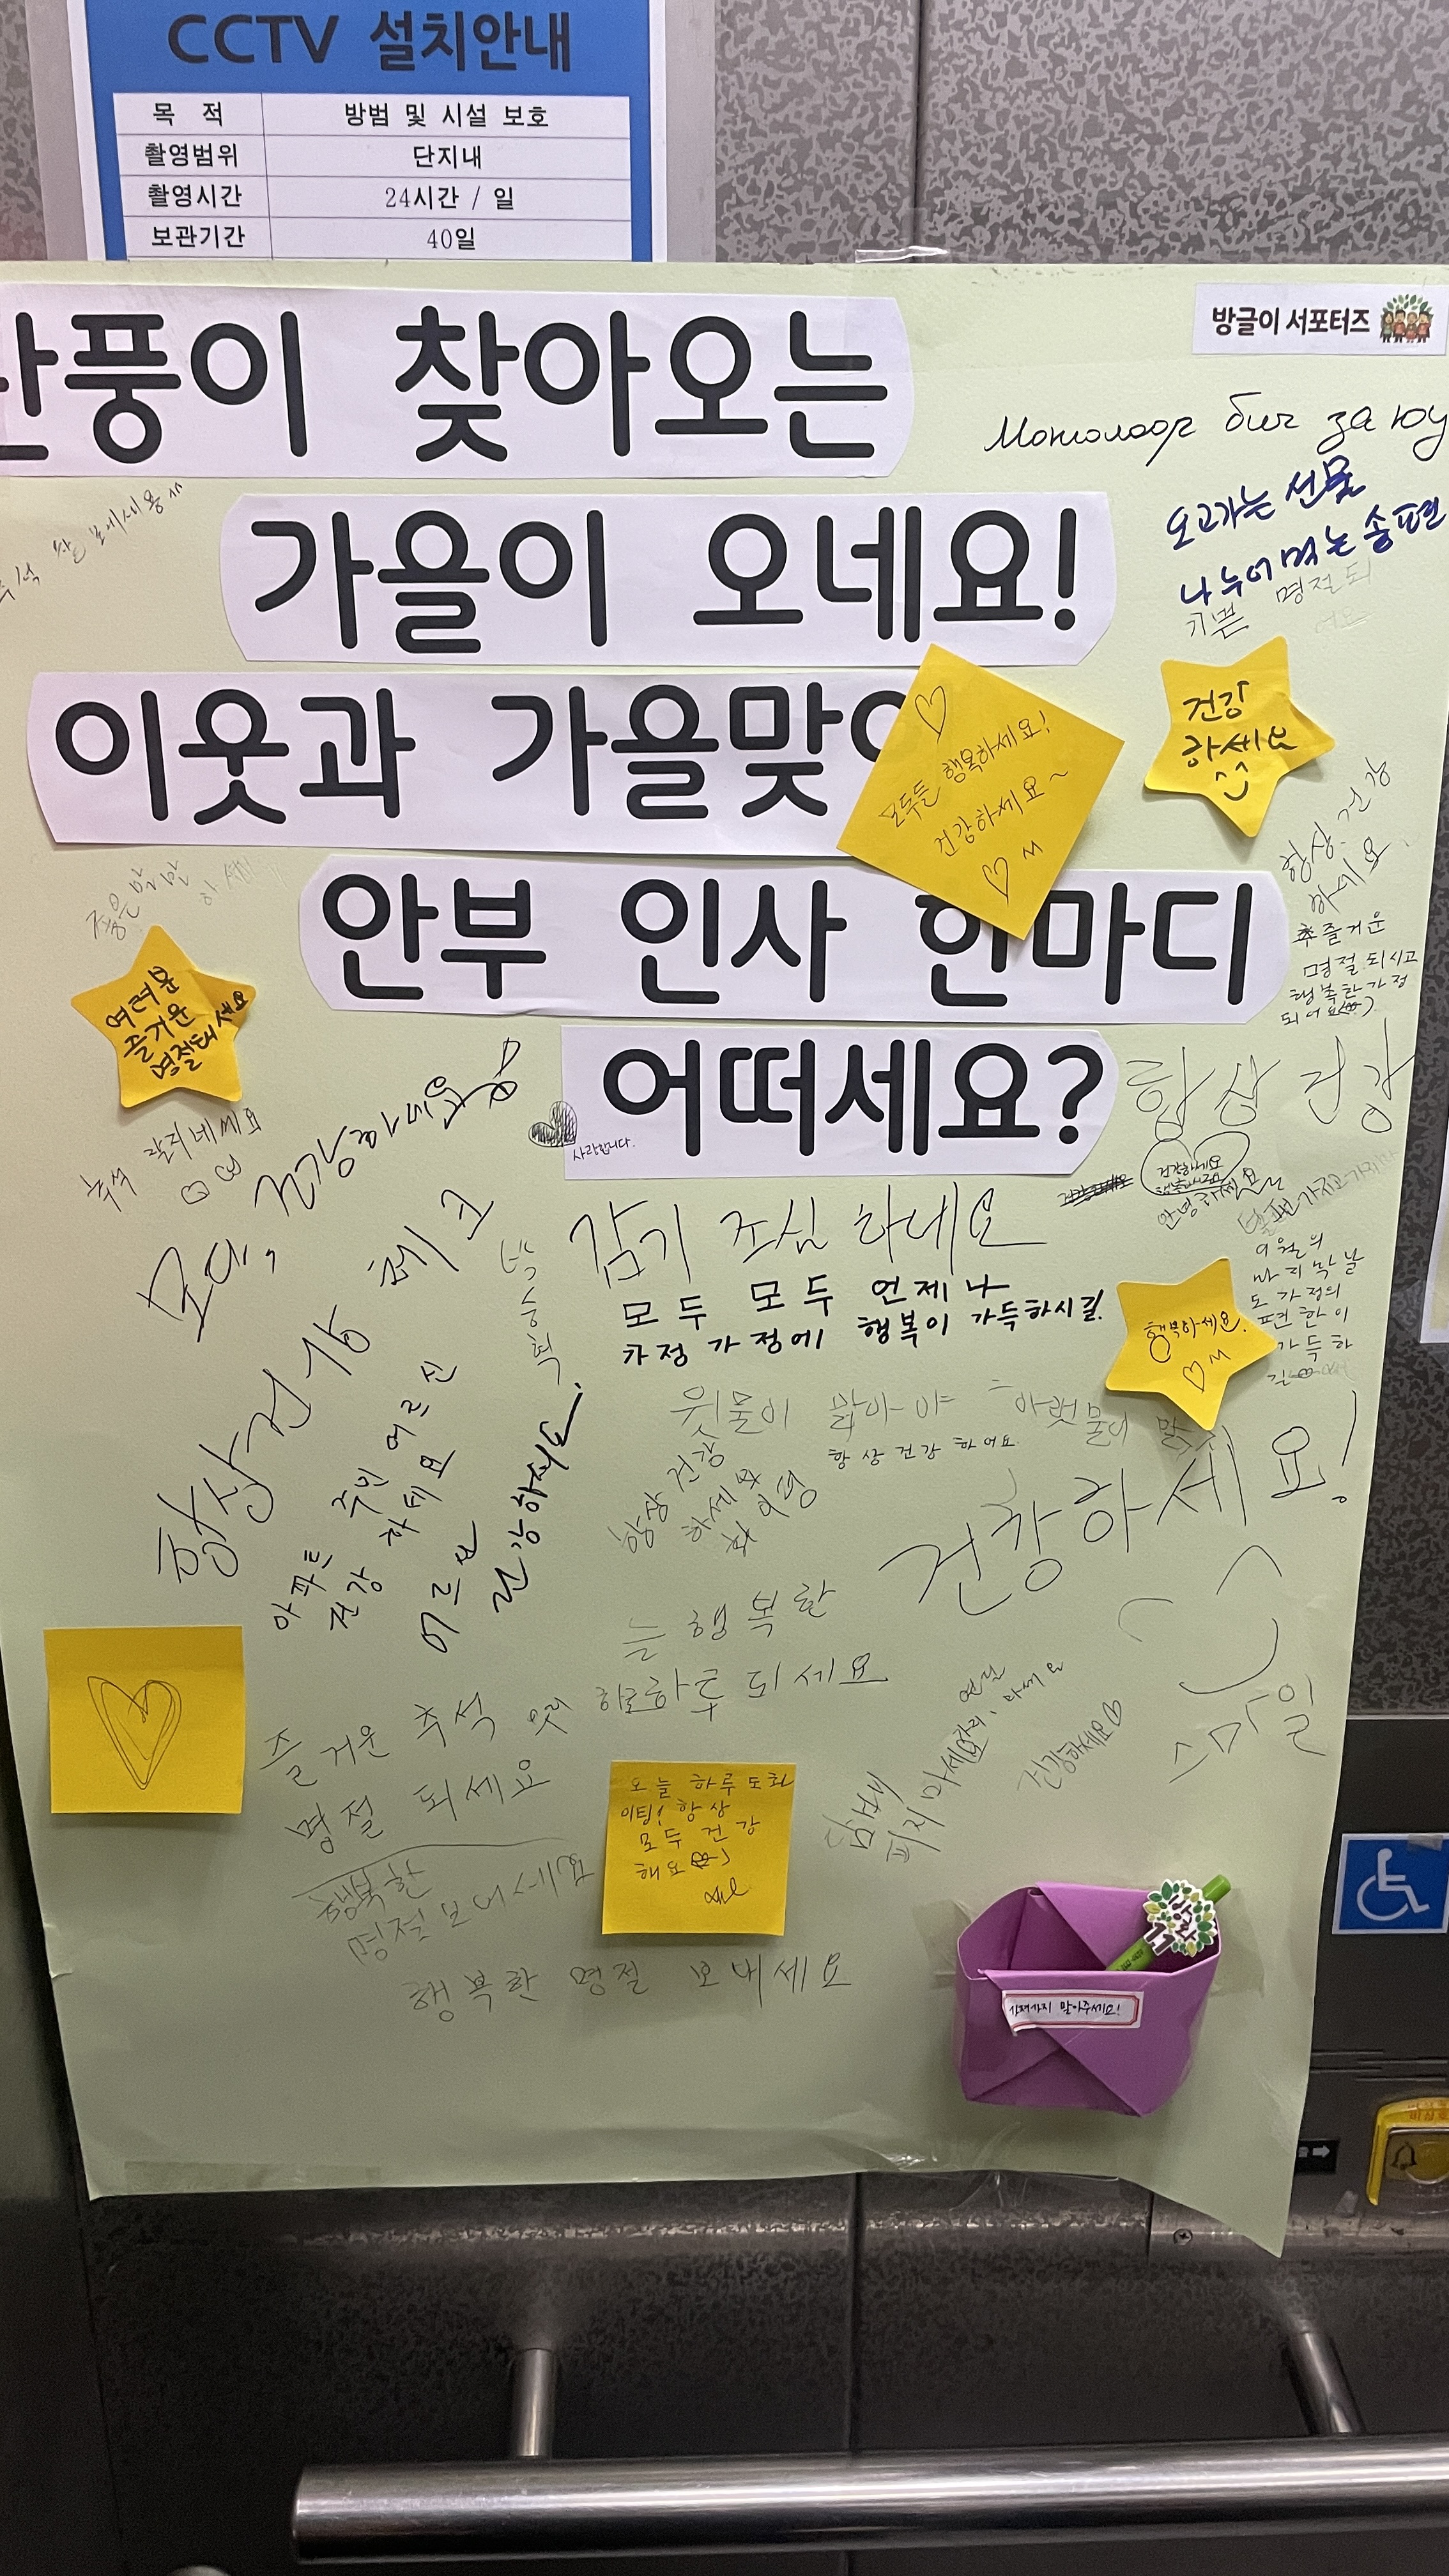 CCTV 설치안내
목 적 방범 및 시설 보호
촬영범위 단지내
촬영시간 24시간 / 일
보관기간 40일
방글이 서포터즈
단풍이 찾아오는
가을이 오네요!
이웃과 가을맞이
안부 인사 한마디
어떠세요?
오고가는 선물
나누어 먹는 송편
기쁜 명절 되
건강
하세요
모두들 행복하세요!
건강하세요~
항상 건강
하세요
즐거운
명절 되시고
행복한 가정
되어요
여러분
즐거운
명절되세요
추석 잘지네쎄요
사랑합니다.
항상 건강
건강하세요
행복하세요
안녕하세요
감기 조심 하세요
모두 모두 언제나
가정 가정에 행복이 가득하시길.
이웃의
마지막 날
도 가정의
평한이
가득하
길
행복하세요.
윗물이 맑아야 아랫물이 맑
항상 건강 하어요
항상 건강
하세요
건강하세요!
아파트 주민 어르신
건강 하세요
어르신 건강하세요
는 행복한
하루 되세요
즐거운 추석
명절 되세요
행복한
명절 보내세요
오늘 하루도화
이팅! 항상
모두 건강
해요
담배
피지 마세요
건강하세요
스마일
행복한 명절 보내세요
가져가지 말아주세요!